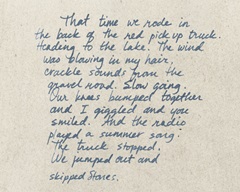 That time we rode in
the back of the red pick up truck.
Heading to the lake. The wind
was blowing in my hair,
crackle sounds from the
gravel road. Slow going.
Our knees bumped together
and I giggled and you
smiled. And the radio
played a summer song.
The truck stopped.
We jumped out and
skipped stones.